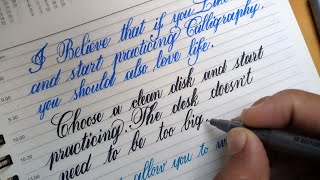 I Believe that if you Like
and start practicing Calligraphy.
you should also love life.
Choose a clean disk and start
practicing. The desk doesn't
need to be too big,
allow you to w
9:00
9:30
10:00
10:30